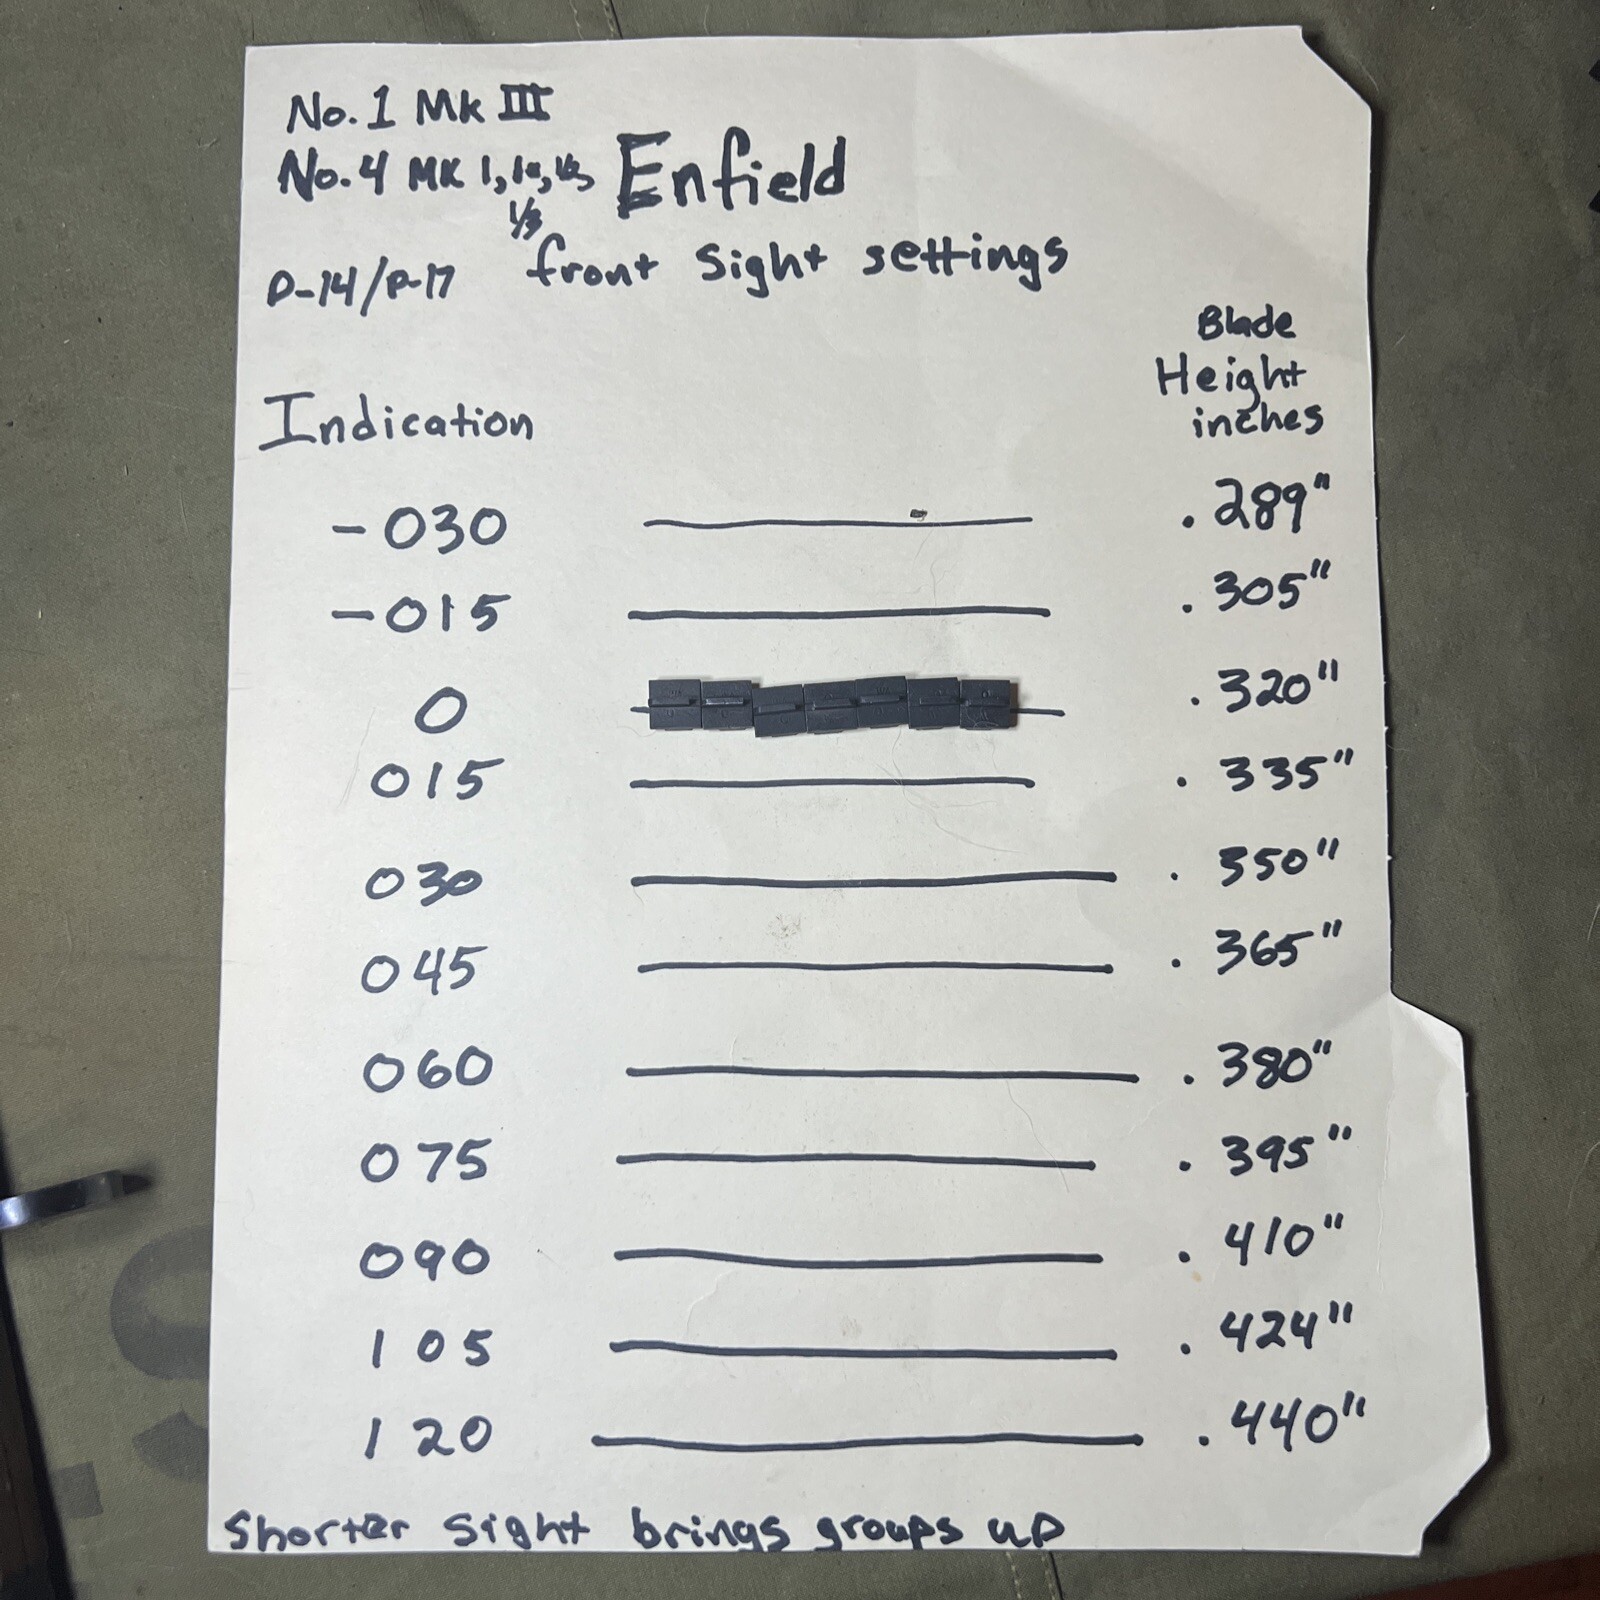 No. 1 Mk III
No. 4 MK 1, 1*, 1/2, Enfield
1/3
P-14/P-17 front Sight settings
Blade
Height
inches
Indication
-030 .289"
-015 .305"
0 .320"
015 .335"
030 .350"
045 .365"
060 .380"
075 .395"
090 .410"
105 .424"
120 .440"
Shorter Sight brings groups up